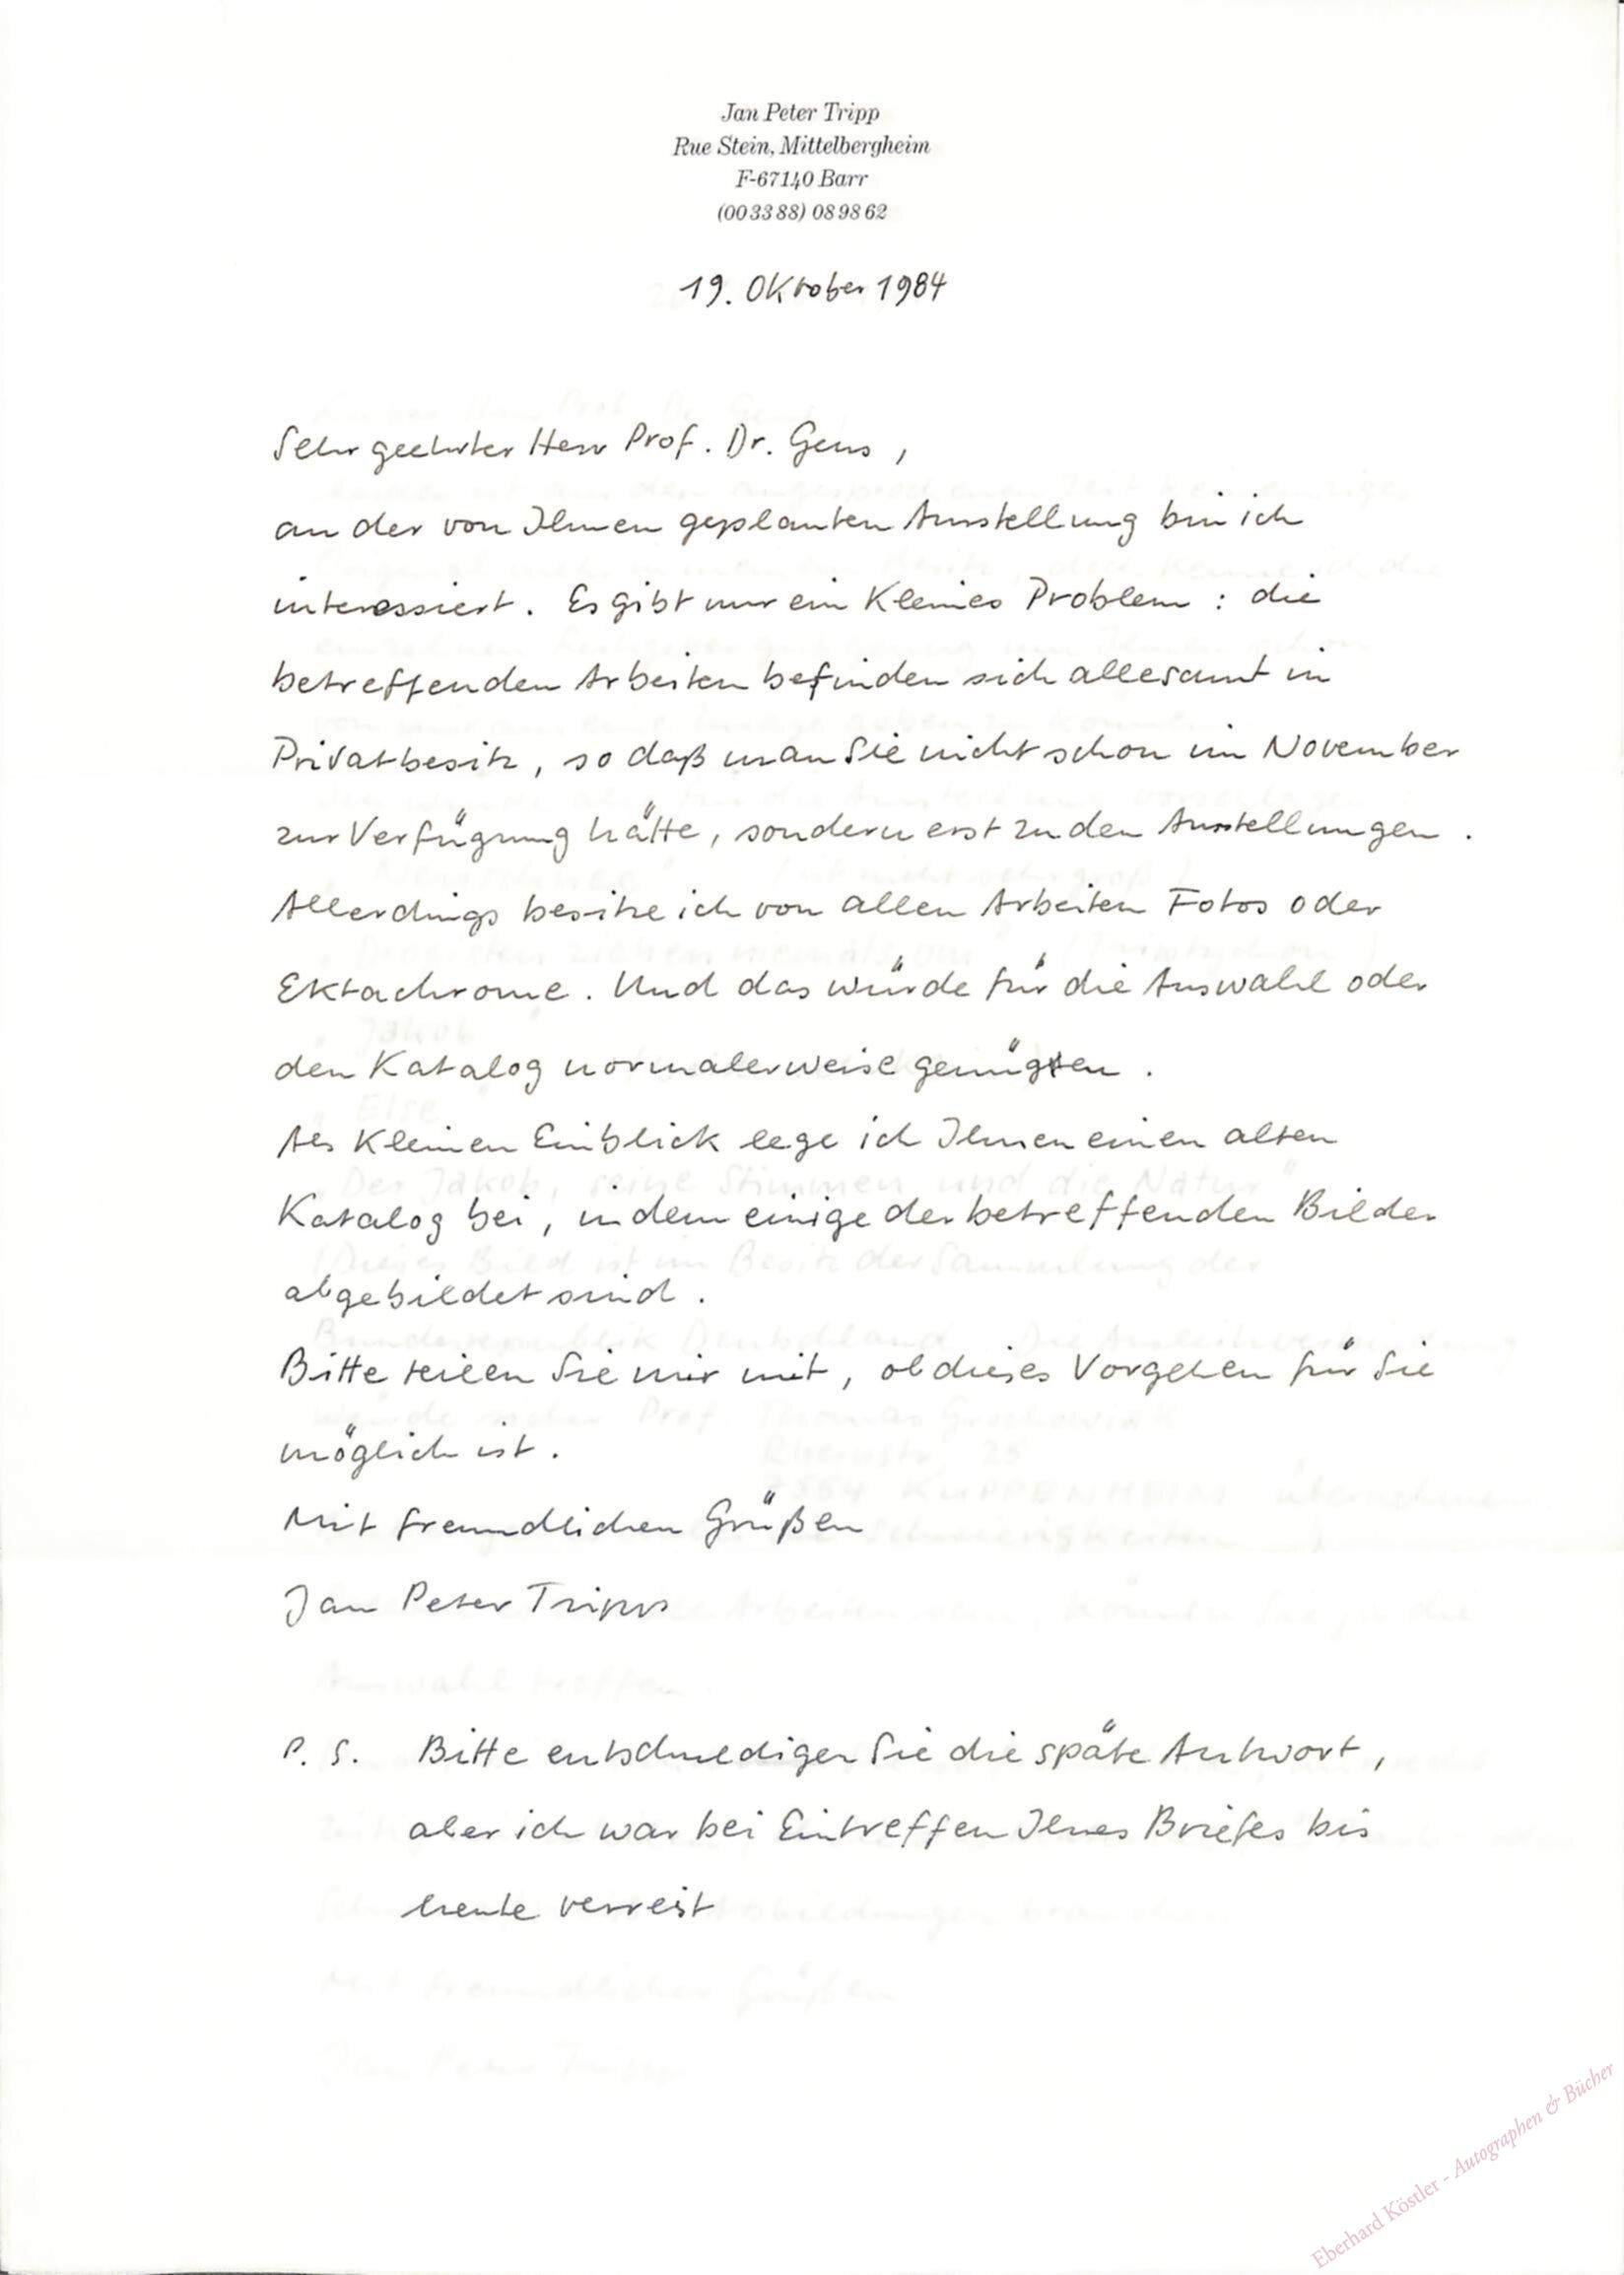 Jan Peter Tripp
Rue Stein, Mittelbergheim
F-67140 Barr
(003388) 089862
19. Oktober 1984
Sehr geehrter Herr Prof. Dr. Gens,
an der von Ihnen geplanten Ausstellung bin ich
interessiert. Es gibt nur ein kleines Problem: die
betreffenden Arbeiten befinden sich allesamt in
Privatbesitz, so daß man Sie nicht schon im November
zur Verfügung hätte, sondern erst zu den Ausstellungen.
Allerdings besitze ich von allen Arbeiten Fotos oder
Ektachrome. Und das würde für die Auswahl oder
den Katalog normalerweise genügen.
Als kleinen Einblick lege ich Ihnen einen alten
Katalog bei, in dem einige der betreffenden Bilder
abgebildet sind.
Bitte teilen Sie mir mit, ob dieses Vorgehen für Sie
möglich ist.
Mit freundlichen Grüßen
Jan Peter Tripp
P. S. Bitte entschuldigen Sie die späte Antwort,
aber ich war bei Eintreffen Ihres Briefes bis
heute verreist
Eberhard Köstler - Autographen & Bücher